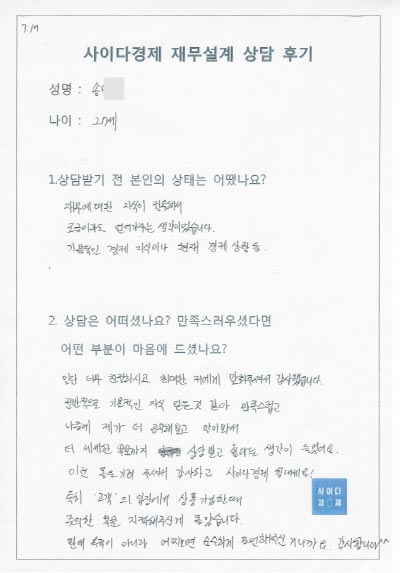 7.19
사이다경제 재무설계 상담 후기
성명 : 송
나이 : 27세
1.상담받기 전 본인의 상태는 어땠나요?
재무에 대한 지식이 전혀
조금이라도 얻어가자는 생각이었습니다.
기본적인 경제 지식이나 현재 경제 상황 등.
2. 상담은 어떠셨나요? 만족스러우셨다면
어떤 부분이 마음에 드셨나요?
일단 너무 친절하시고 최대한 저에게 맞춰주셔서 감사했습니다.
전반적으로 기본적인 지식 얻은것 같아 만족스럽고
나중에 제가 더 공부해보고 알아와서
더 세세한 부분까지 상담받고 싶다는 생각이 들었어요.
이런 좋은 기회 주셔서 감사하고 사이다경제 힘내세요!
특히 '고객'의 입장에서 상품 가입한때
주의할 부분 지적해주신게 좋았습니다.
판매 목적이 아니라 어찌보면 순수하게 조언해주신 거니까요. 감사합니다^^
사이다
경제